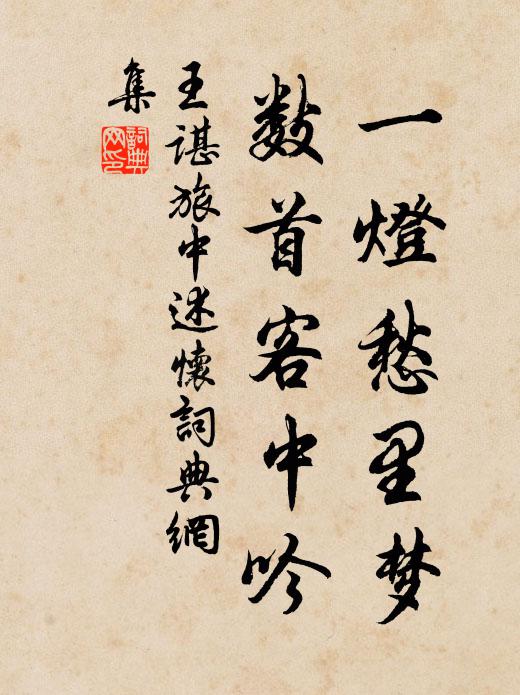 一燈愁里梦
数首客中吟
王諶旅中述懷詞典網
集
詞典
网印